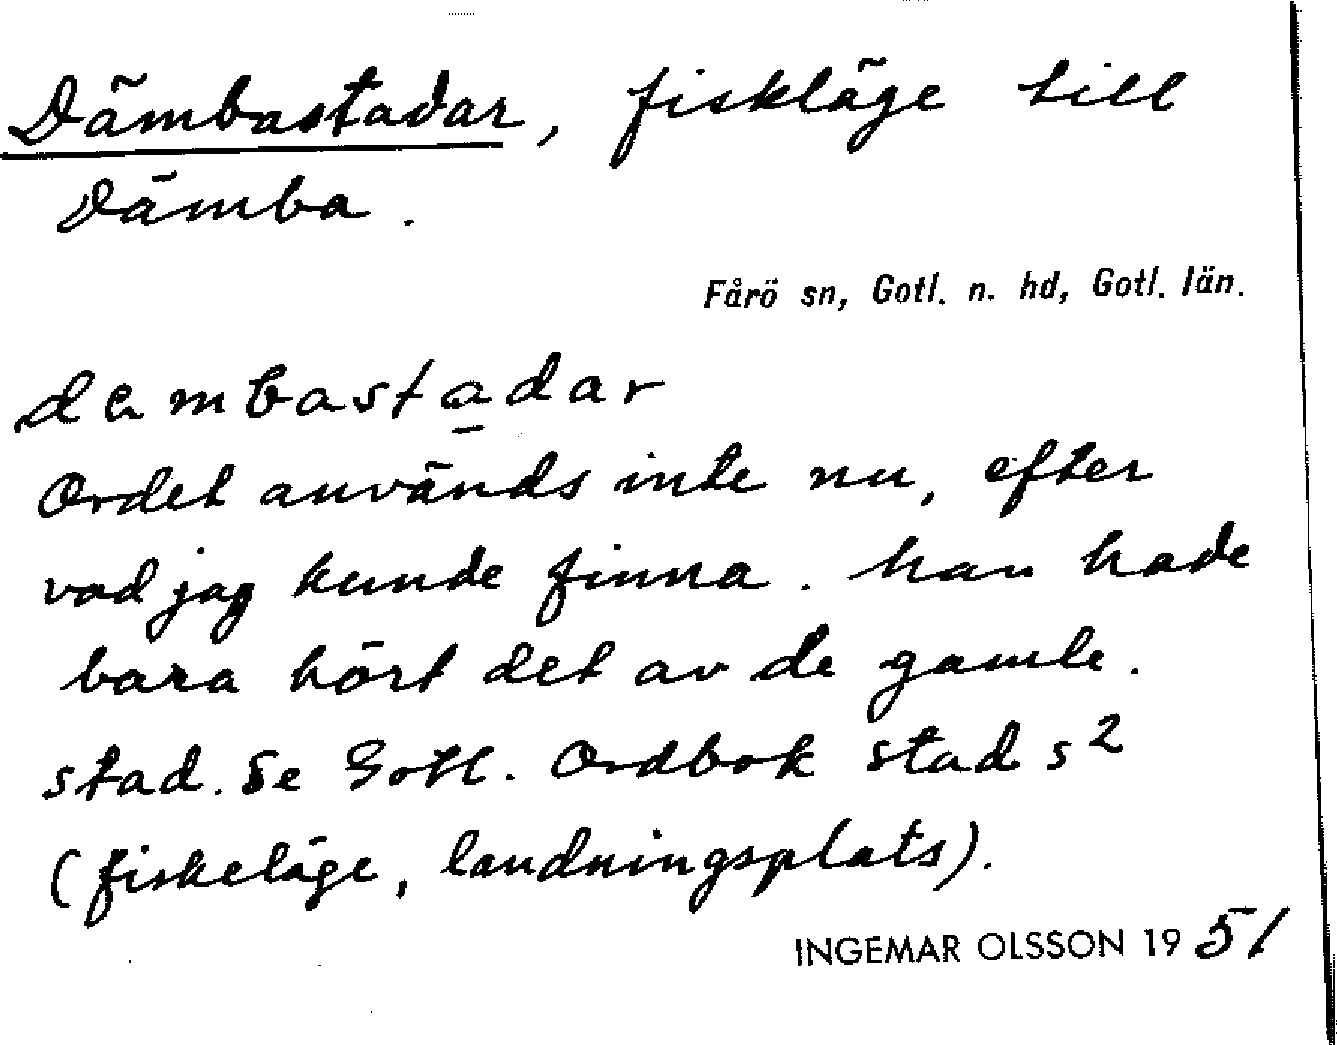 Dämbastadar, fiskläge till
Dämba.
Fårö sn, Gotl. n. hd, Gotl. län.
dembastadar
Ordet användes inte nu, efter
vad jag kunde finna. han hade
bara hört det av de gamle.
stad. Se Gotl. Ordbok stad s²
(fiskeläge, landningsplats).
INGEMAR OLSSON 1951